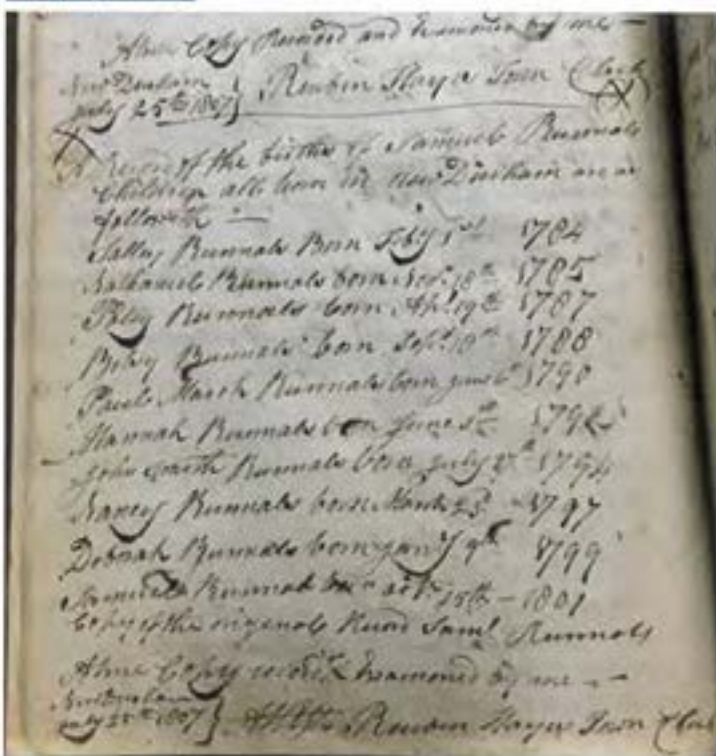 A true Copy Record and examined by me —
New Durham
July 25th 1807 } Reubin Hayes Town Clerk
A Record of the births of Samuel Runnals
Children all born in New Durham are as
followeth —
Salley Runnals Born Feby 1st 1784
Nathaniel Runnals born Novr 18th 1785
Runnals born Apl 19th 1787
Betsy Runnals born Sept 10th 1788
Paul March Runnals born June 1790
Hannah Runnals born June 1792
John Smith Runnals born July 1794
Nancy Runnals born March 23d 1797
Deborah Runnals born Jany 9th 1799
Samuel Runnals born Octr 15th – 1801
Copy of the origenal Record Saml Runnals
A true Copy record & examined by me —
New Durham
July 25th 1807 } Attest Reuben Hayes Town Clerk